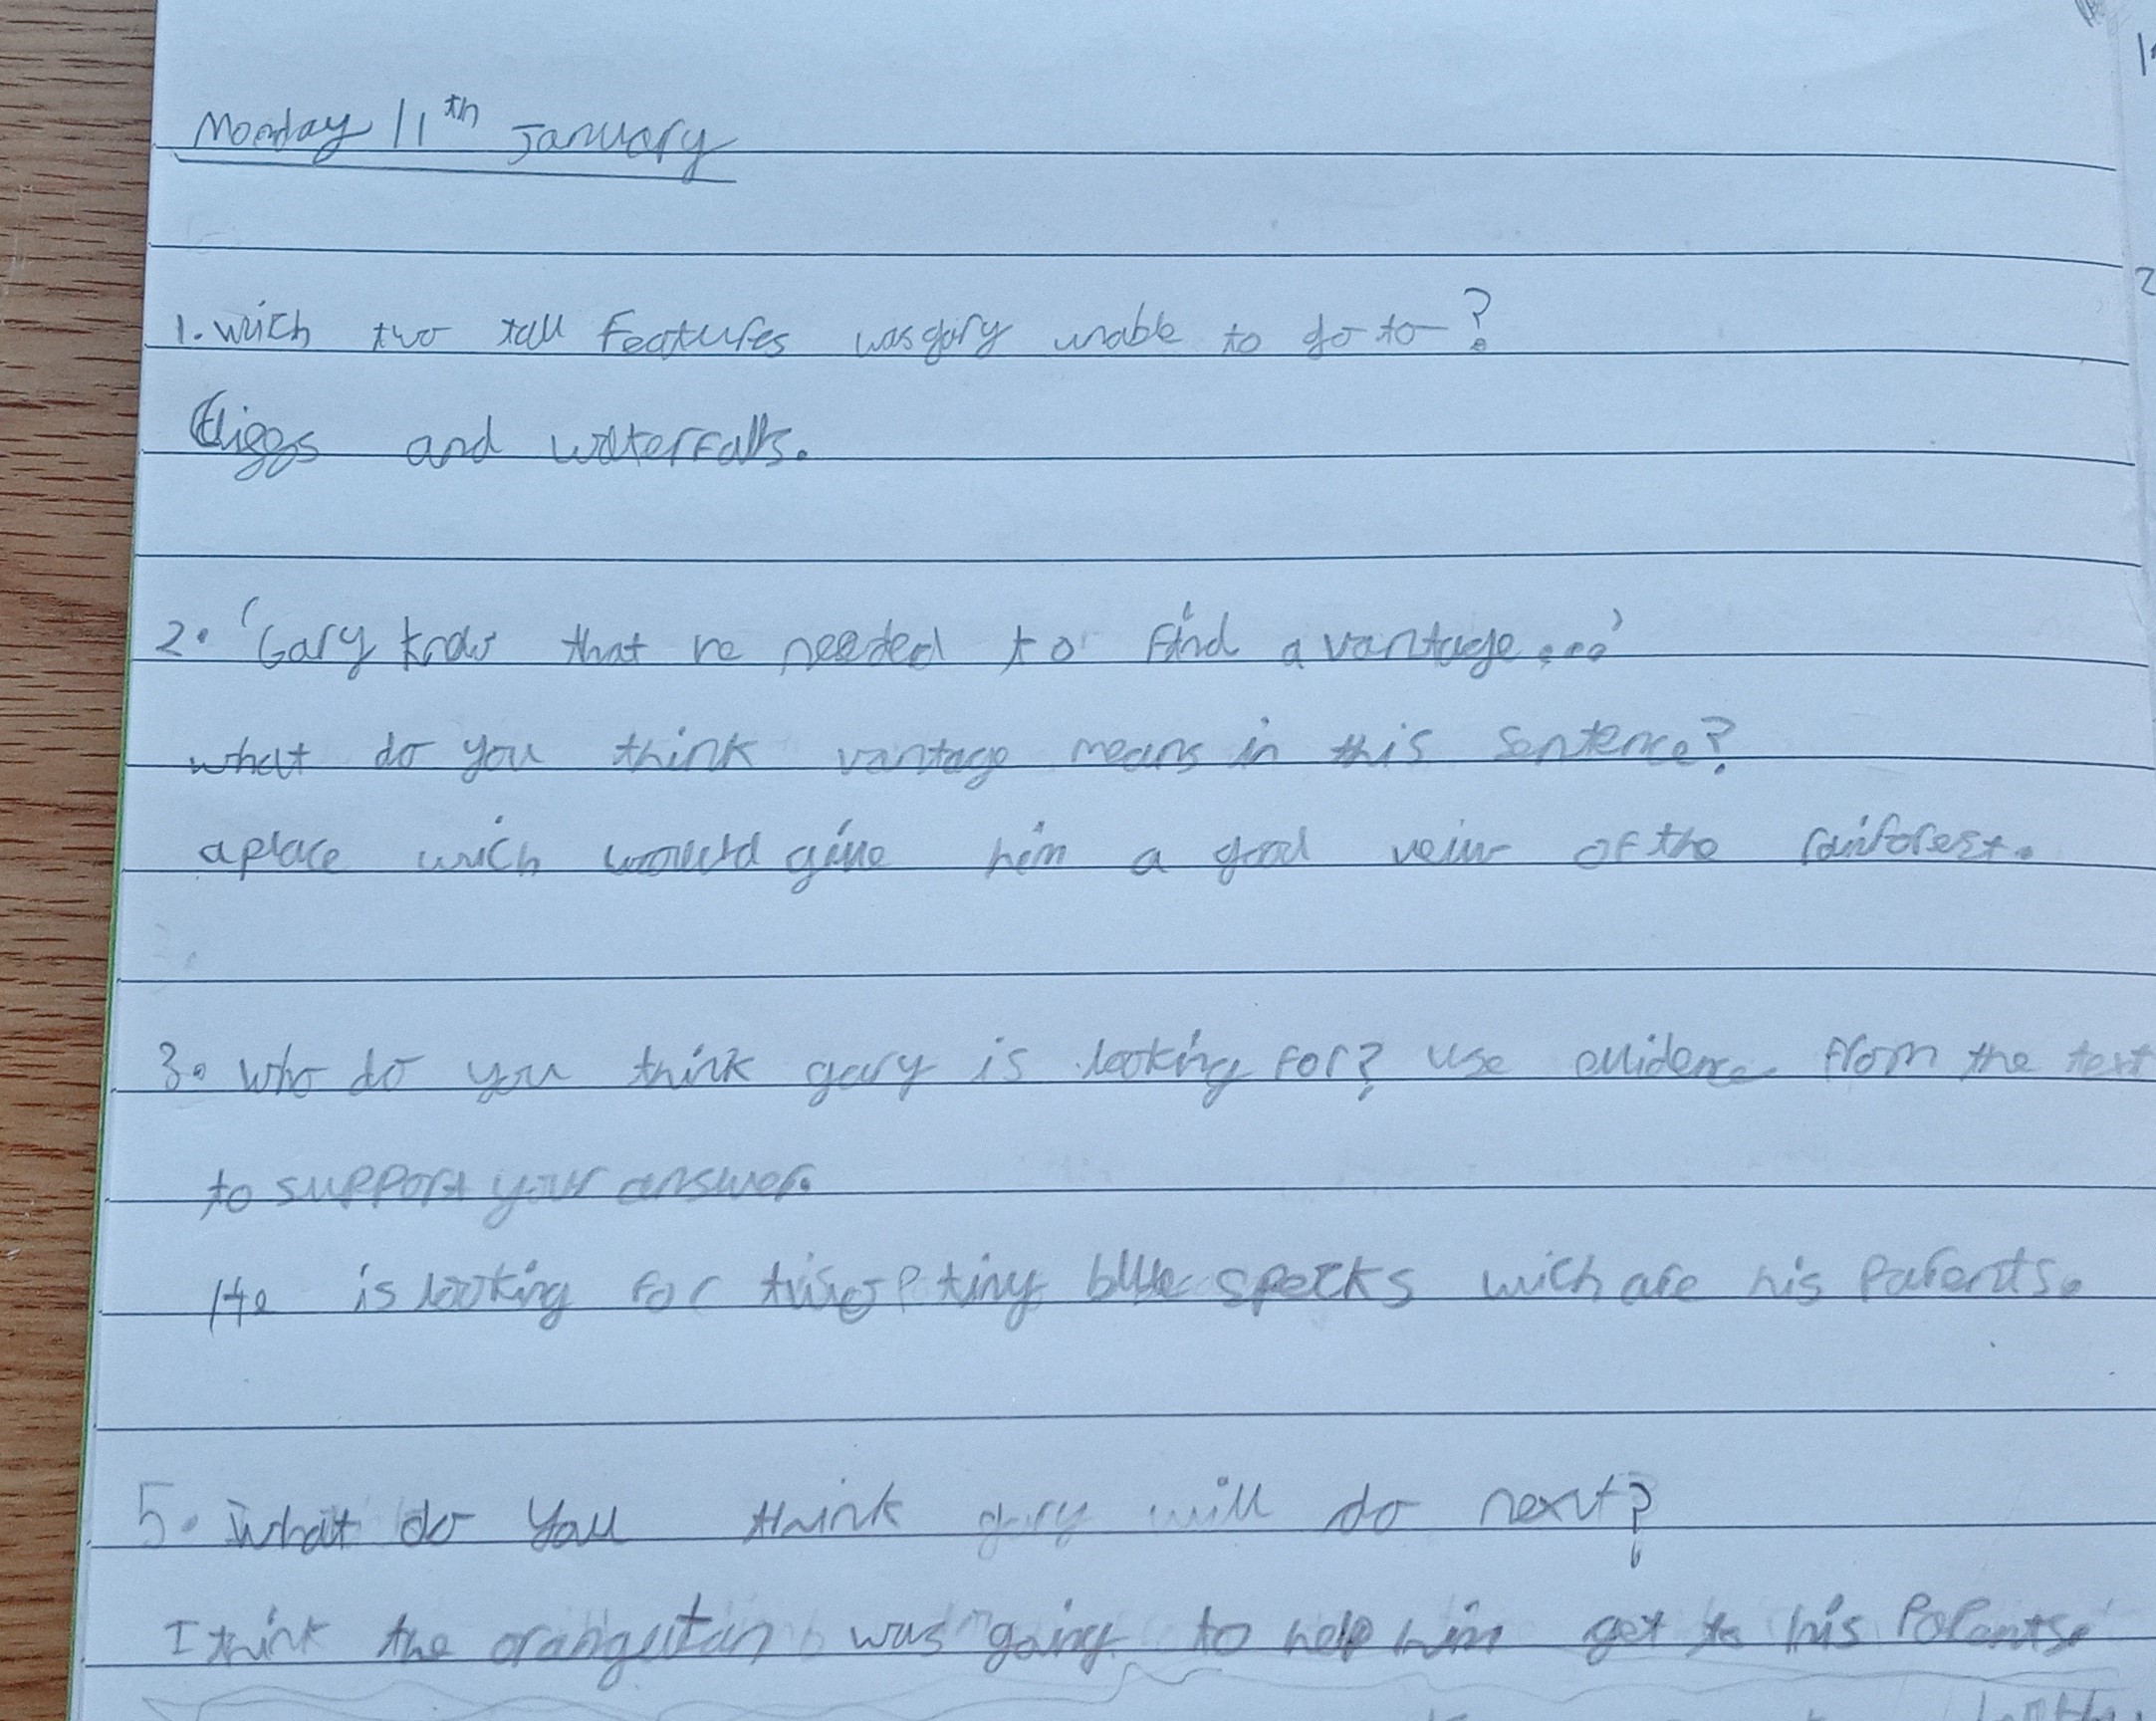 Monday 11th January
1. wich two tall features was gary unable to go to?
and waterfalls.
2. 'Gary know that he needed to find a vantage...'
what do you think vantage means in this sentence?
a place wich would give him a good veiw of the rainforest.
3. who do you think gary is looking for? use evidence from the text
to support your answer.
He is looking for tiny blue specks wich are his parents.
5. What do you think gary will do next?
I think the orangutan was going to help him get to his parents.